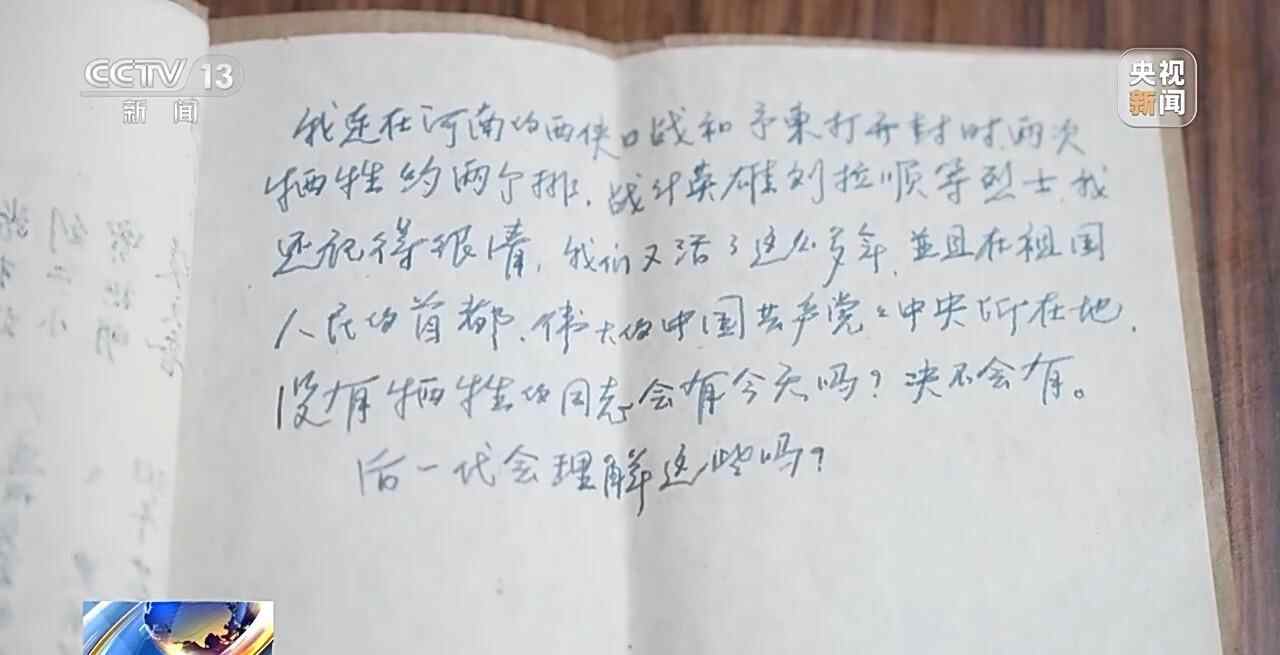 CCTV 13
新闻
央视
新闻
我连在河南的西侠口战和予东打开封时,两次
牺牲约两个排,战斗英雄刘拉顺等烈士,我
还记得很清,我们又活了这么多年,並且在祖国
人民的首都,伟大的中国共产党之中央所在地,
没有牺牲的同志会有今天吗?决不会有。
后一代会理解这些吗?